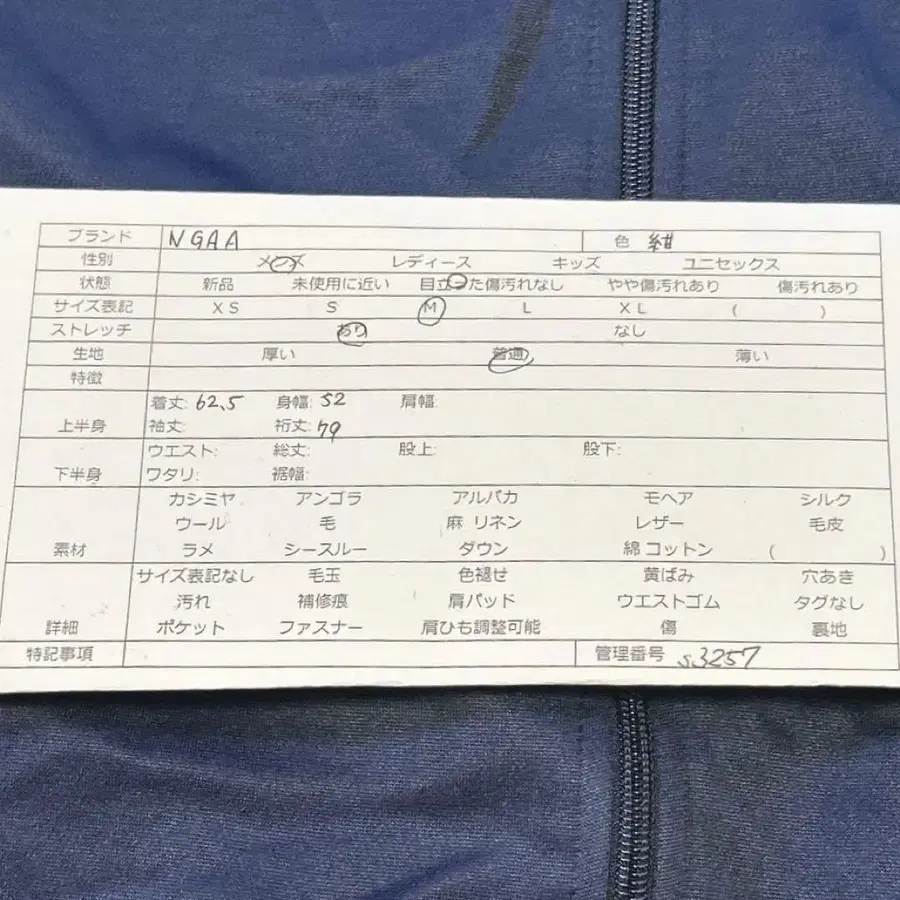 ブランド NGAA 色 紺
性別 メンズ レディース キッズ ユニセックス
状態 新品 未使用に近い 目立った傷汚れなし やや傷汚れあり 傷汚れあり
サイズ表記 XS S M L XL ( )
ストレッチ あり なし
生地 厚い 普通 薄い
特徴
上半身 着丈: 62.5 身幅: 52 肩幅:
袖丈: 裄丈: 79
下半身 ウエスト: 総丈: 股上: 股下:
ワタリ: 裾幅:
カシミヤ アンゴラ アルパカ モヘア シルク
ウール 毛 麻 リネン レザー 毛皮
素材 ラメ シースルー ダウン 綿 コットン ( )
サイズ表記なし 毛玉 色褪せ 黄ばみ 穴あき
汚れ 補修痕 肩パッド ウエストゴム タグなし
詳細 ポケット ファスナー 肩ひも調整可能 傷 裏地
特記事項 管理番号 s3257